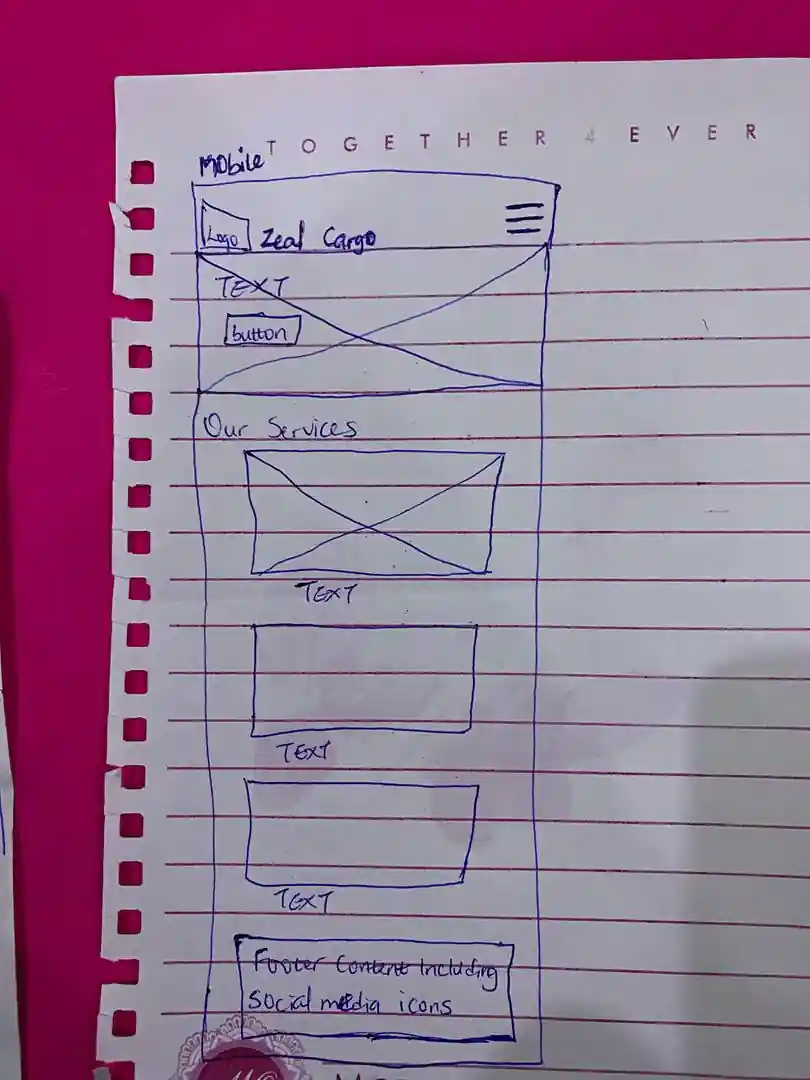 TOGETHER 4 EVER
Mobile
Logo Zeal Cargo
TEXT
button
Our Services
TEXT
TEXT
TEXT
Footer Content Including
Social media icons